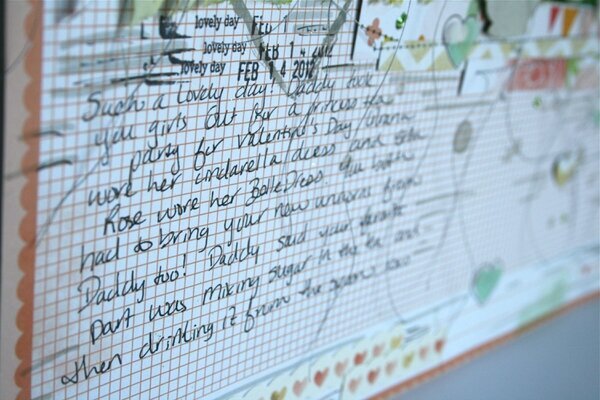 lovely day FEB 1
lovely day FEB 1 4 2012
lovely day FEB 1 4 2012
Such a lovely day! Daddy took
you girls out for a princess tea
party for Valentine's Day.
wore her cindarella dress and
Rose wore her Belle Dress. You both
had to bring your new unicorns from
Daddy too! Daddy said your favorite
part was mixing sugar in the tea and
then drinking it from the spoon.